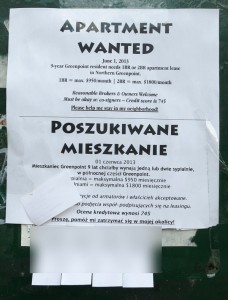 APARTMENT
WANTED
June 1, 2013
9-year Greenpoint resident needs 1BR or 2BR apartment lease
in Northern Greenpoint.
1BR = max. $950/month | 2BR = max. $1800/month
Reasonable Brokers & Owners Welcome
Must be okay w/ co-signers – Credit score is 745
Please help me stay in my neighborhood!
POSZUKIWANE
MIESZKANIE
01 czerwca 2013
Mieszkaniec Greenpoint 9 lat chciałby wynająć jedną lub dwie sypialnie,
w północnej części Greenpoint.
maksymalna $950 miesięcznie
maksymalna $1800 miesięcznie
od armatorów i właścicieli akceptowane.
podjęcia współ-podpisujących się na leasingu.
Ocena kredytowa wynosi 745
Proszę, pomóż mi zatrzymać się w mojej okolicy!